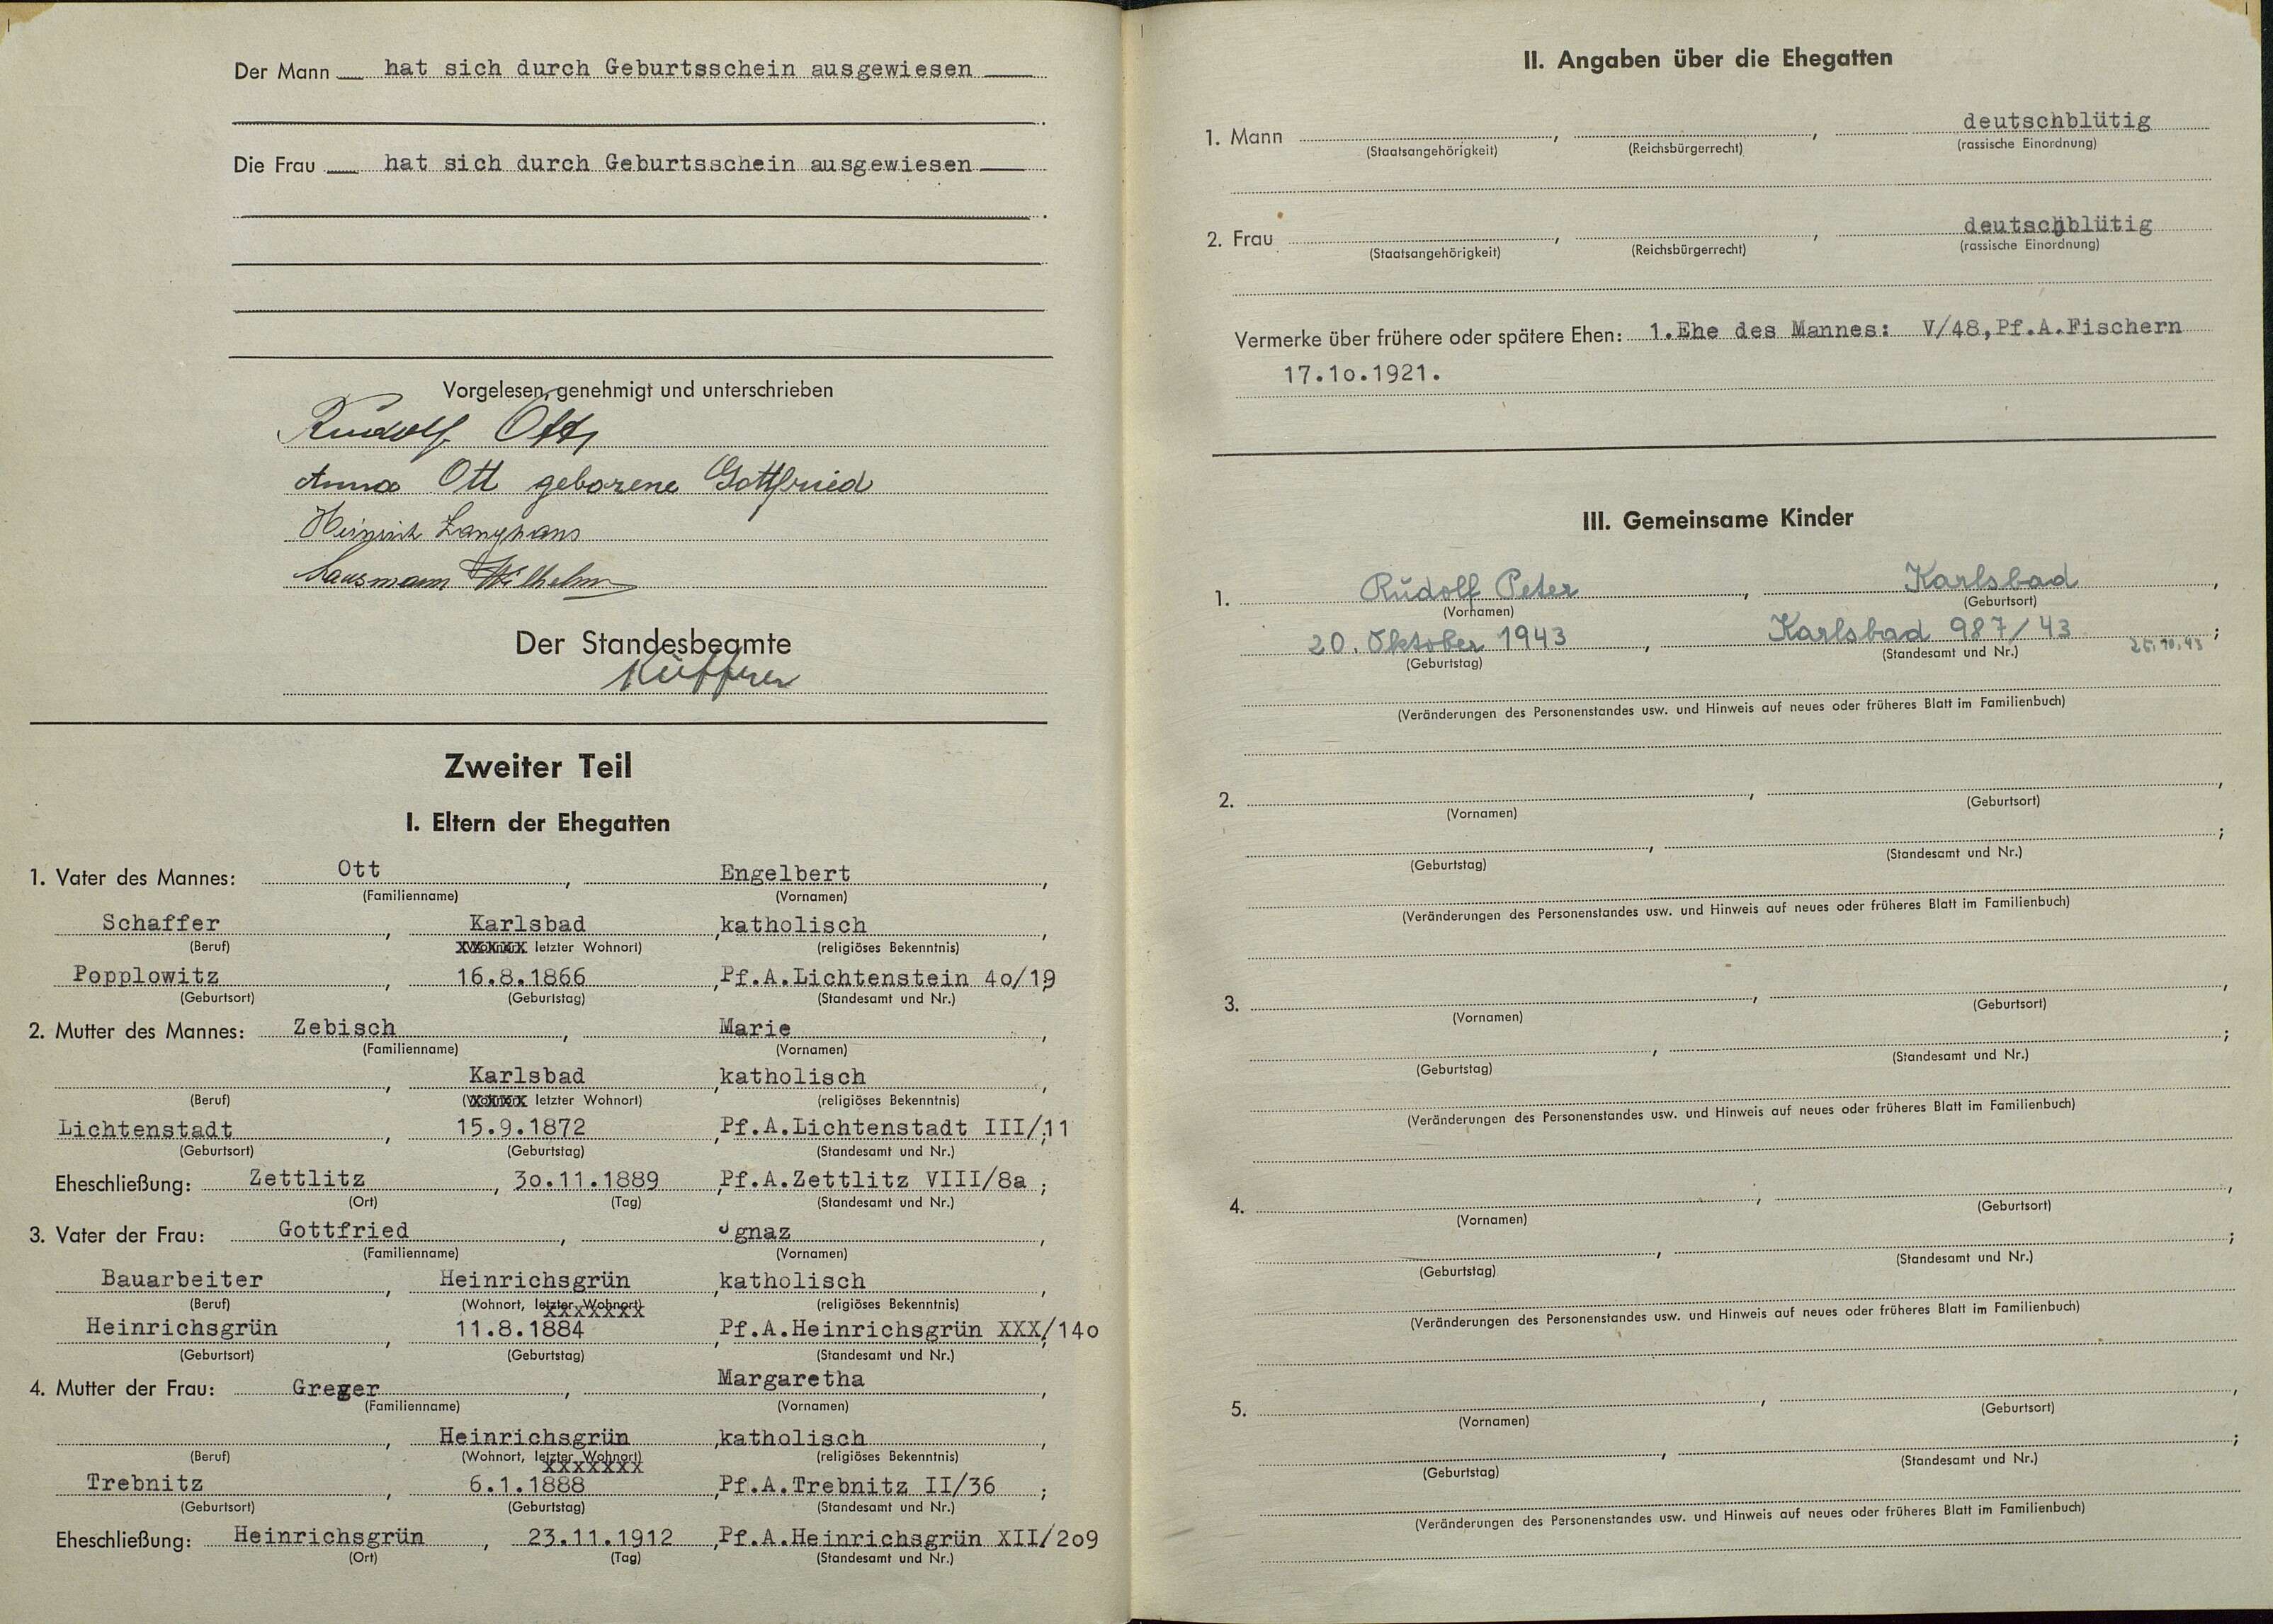 Der Mann hat sich durch Geburtsschein ausgewiesen
Die Frau hat sich durch Geburtsschein ausgewiesen
Vorgelesen, genehmigt und unterschrieben
Rudolf Ott
Anna Ott geborene Gottfried
Heinrich Langhans
Hausmann Wilhelm
Der Standesbeamte
Zweiter Teil
I. Eltern der Ehegatten
1. Vater des Mannes: Ott, Engelbert,
(Familienname) (Vornamen)
Schaffer, Karlsbad, katholisch,
(Beruf) (Wohnort, letzter Wohnort) (religiöses Bekenntnis)
Popplowitz, 16.8.1866, Pf.A.Lichtenstein 4o/19;
(Geburtsort) (Geburtstag) (Standesamt und Nr.)
2. Mutter des Mannes: Zebisch, Marie,
(Familienname) (Vornamen)
, Karlsbad, katholisch,
(Beruf) (Wohnort, letzter Wohnort) (religiöses Bekenntnis)
Lichtenstadt, 15.9.1872, Pf.A.Lichtenstadt III/11;
(Geburtsort) (Geburtstag) (Standesamt und Nr.)
Eheschließung: Zettlitz, 3o.11.1889, Pf.A.Zettlitz VIII/8a;
(Ort) (Tag) (Standesamt und Nr.)
3. Vater der Frau: Gottfried, Jgnaz,
(Familienname) (Vornamen)
Bauarbeiter, Heinrichsgrün, katholisch,
(Beruf) (Wohnort, letzter Wohnort) (religiöses Bekenntnis)
Heinrichsgrün, 11.8.1884, Pf.A.Heinrichsgrün XXX/14o;
(Geburtsort) (Geburtstag) (Standesamt und Nr.)
4. Mutter der Frau: Greger, Margaretha,
(Familienname) (Vornamen)
, Heinrichsgrün, katholisch,
(Beruf) (Wohnort, letzter Wohnort) (religiöses Bekenntnis)
Trebnitz, 6.1.1888, Pf.A.Trebnitz II/36;
(Geburtsort) (Geburtstag) (Standesamt und Nr.)
Eheschließung: Heinrichsgrün, 23.11.1912, Pf.A.Heinrichsgrün XII/2o9
(Ort) (Tag) (Standesamt und Nr.)
II. Angaben über die Ehegatten
1. Mann , , deutschblütig
(Staatsangehörigkeit) (Reichsbürgerrecht) (rassische Einordnung)
2. Frau , , deutschblütig
(Staatsangehörigkeit) (Reichsbürgerrecht) (rassische Einordnung)
Vermerke über frühere oder spätere Ehen: 1.Ehe des Mannes: V/48,Pf.A.Fischern
17.1o.1921.
III. Gemeinsame Kinder
1. Rudolf Peter, Karlsbad,
(Vornamen) (Geburtsort)
20. Oktober 1943, Karlsbad 987/43 ;
(Geburtstag) (Standesamt und Nr.)
(Veränderungen des Personenstandes usw. und Hinweis auf neues oder früheres Blatt im Familienbuch)
2. , ,
(Vornamen) (Geburtsort)
, ;
(Geburtstag) (Standesamt und Nr.)
(Veränderungen des Personenstandes usw. und Hinweis auf neues oder früheres Blatt im Familienbuch)
3. , ,
(Vornamen) (Geburtsort)
, ;
(Geburtstag) (Standesamt und Nr.)
(Veränderungen des Personenstandes usw. und Hinweis auf neues oder früheres Blatt im Familienbuch)
4. , ,
(Vornamen) (Geburtsort)
, ;
(Geburtstag) (Standesamt und Nr.)
(Veränderungen des Personenstandes usw. und Hinweis auf neues oder früheres Blatt im Familienbuch)
5. , ,
(Vornamen) (Geburtsort)
, ;
(Geburtstag) (Standesamt und Nr.)
(Veränderungen des Personenstandes usw. und Hinweis auf neues oder früheres Blatt im Familienbuch)